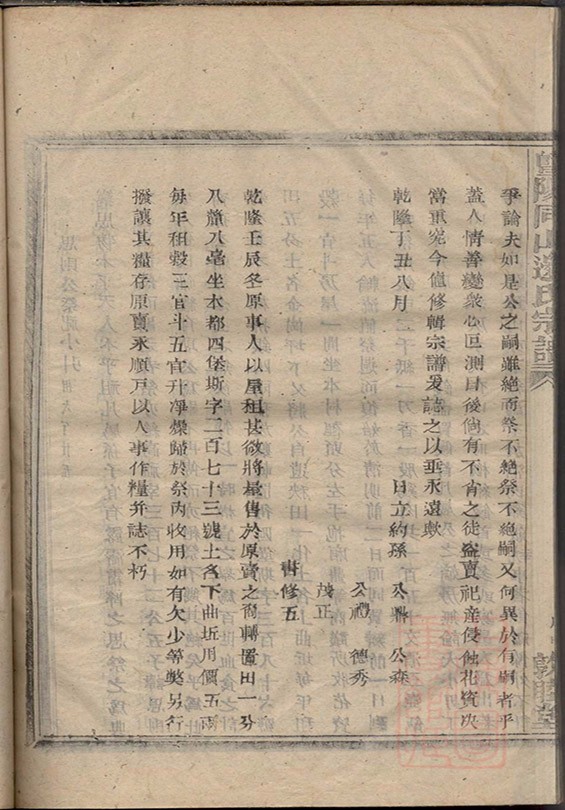 爭論夫如是公之嗣雖絕而祭不絕祭不絕嗣又何異於有嗣者乎
蓋人情善變衆心叵測日後倘有不肖之徒盜賣祀產侵蝕花寳決
當重究今値修輯宗譜爰誌之以垂永遠歟
乾隆丁丑八月 日立約孫 公鼎 公森
公禮 德秀
茂正
書修五
乾隆壬辰冬原事人以屋租甚欲將量售於原賣之裔轉置田一分
八釐八毫坐本都四堡斯字二百七十三號土名下曲坵用價五兩
每年租穀三官斗五官升凈燥歸於祭內收用如有欠少等獘另行
撥讓其糧存原賣永順戸以人事作糧并誌不朽
暨陽同山邊氏宗譜
敦睦堂